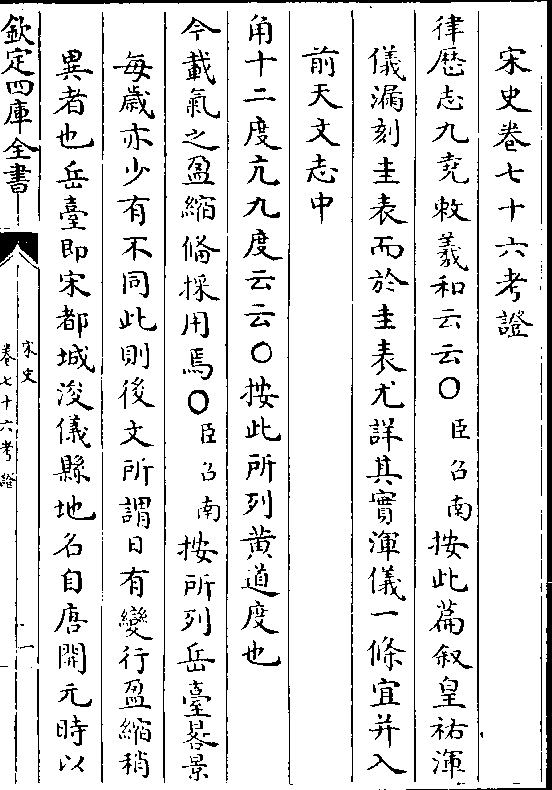 宋史卷七十六考證
律厯志九堯敕羲和云云○臣召南按此篇叙皇祐渾
儀漏刻圭表而於圭表尤詳其實渾儀一條宜并入
前天文志中
角十二度亢九度云云○按此所列黄道度也
今載氣之盈縮僃採用焉○臣召南按所列岳臺晷景
每歲亦少有不同此則後文所謂日有變行盈縮稍
異者也岳臺即宋都城浚儀縣地名自唐開元時以
欽定四庫全書
宋史
卷七十六考證
一